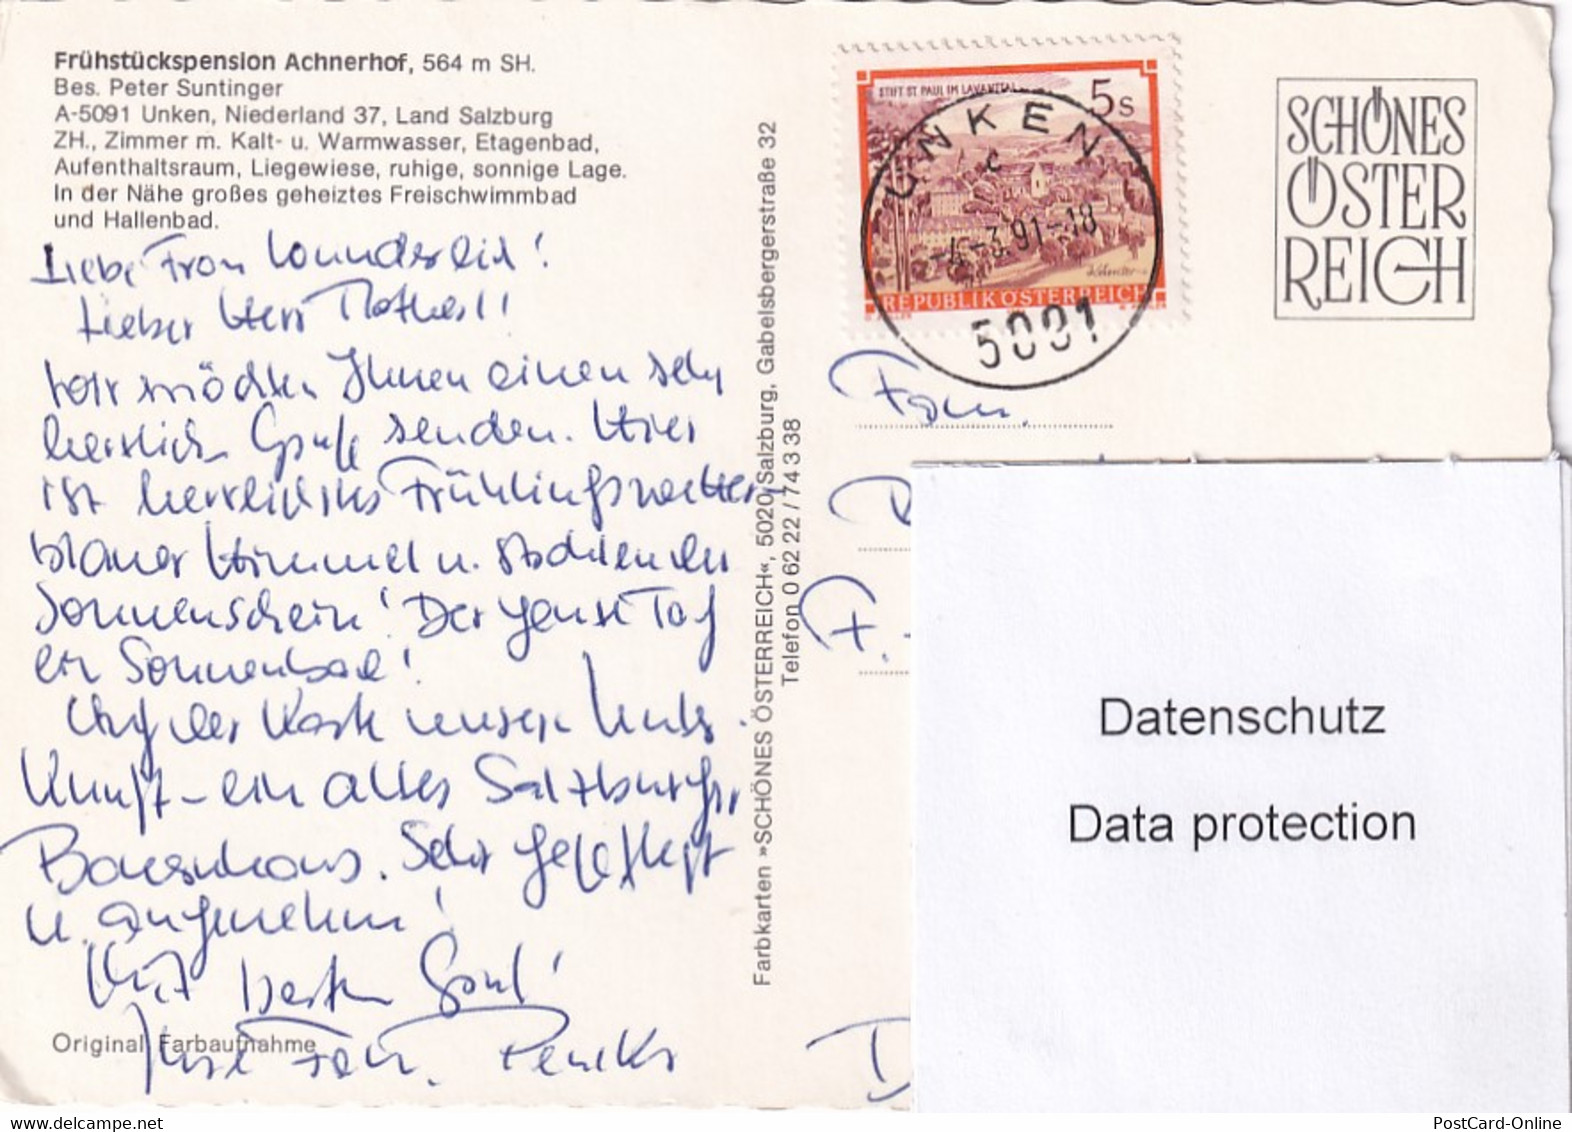 Frühstückspension Achnerhof, 564 m SH.
Bes. Peter Suntinger
A-5091 Unken, Niederland 37, Land Salzburg
ZH., Zimmer m. Kalt- u. Warmwasser, Etagenbad,
Aufenthaltsraum, Liegewiese, ruhige, sonnige Lage.
In der Nähe großes geheiztes Freischwimmbad
und Hallenbad.
Liebe Frau Wunderlich!
Lieber Herr
wir möchten Ihnen einen sehr
herzlich Gruß senden. Hier
ist herrlichstes Frühlingswetter-
blauer Himmel u. strahlender
Sonnenschein! Der ganze Tag
ein Sonnenbad!
Auf der Karte unsere Unter-
kunft - ein altes Salzburger
Bauernhaus. Sehr gepflegt
u. angenehm!
Mit besten Gruß!
Ihre Fam.
Original Farbaufnahme
Farbkarten »SCHÖNES ÖSTERREICH«, 5020 Salzburg, Gabelsbergerstraße 32
Telefon 0 62 22 / 74 3 38
STIFT ST. PAUL IM LAVANTTAL
5s
REPUBLIK ÖSTERREICH
UNKEN
c
-4.-3.91-18
5091
SCHÖNES
ÖSTER
REICH
Fam.
F.
D
Datenschutz
Data protection
PostCard-Online